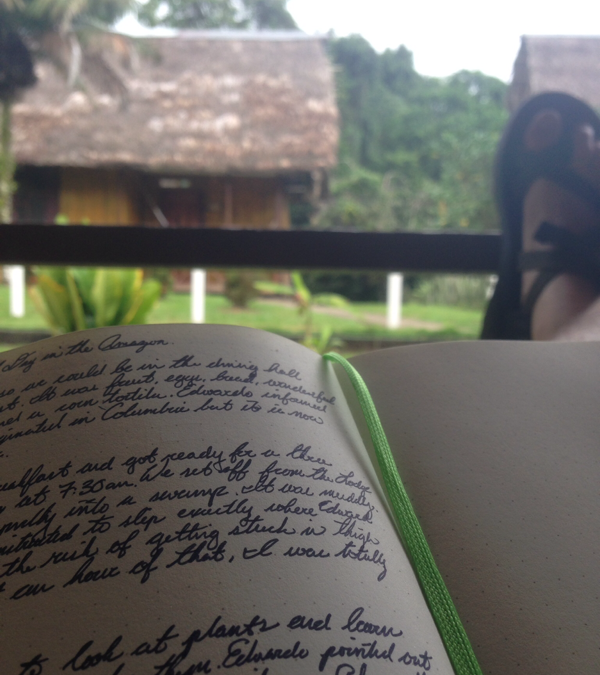 Day in the Amazon.
so we could be in the dining hall
It was fruit, eggs, bread, wonderful
a corn tortilla. Edwardo informed
in Columbia but its is now
and got ready for a three
at 7:30am. We set off from the Lodge
into a swamp. It was muddy.
to step exactly where Edward
the risk of getting stuck in thigh
an hour of that, I was totally
to look at plants and learn
them. Edwardo pointed out